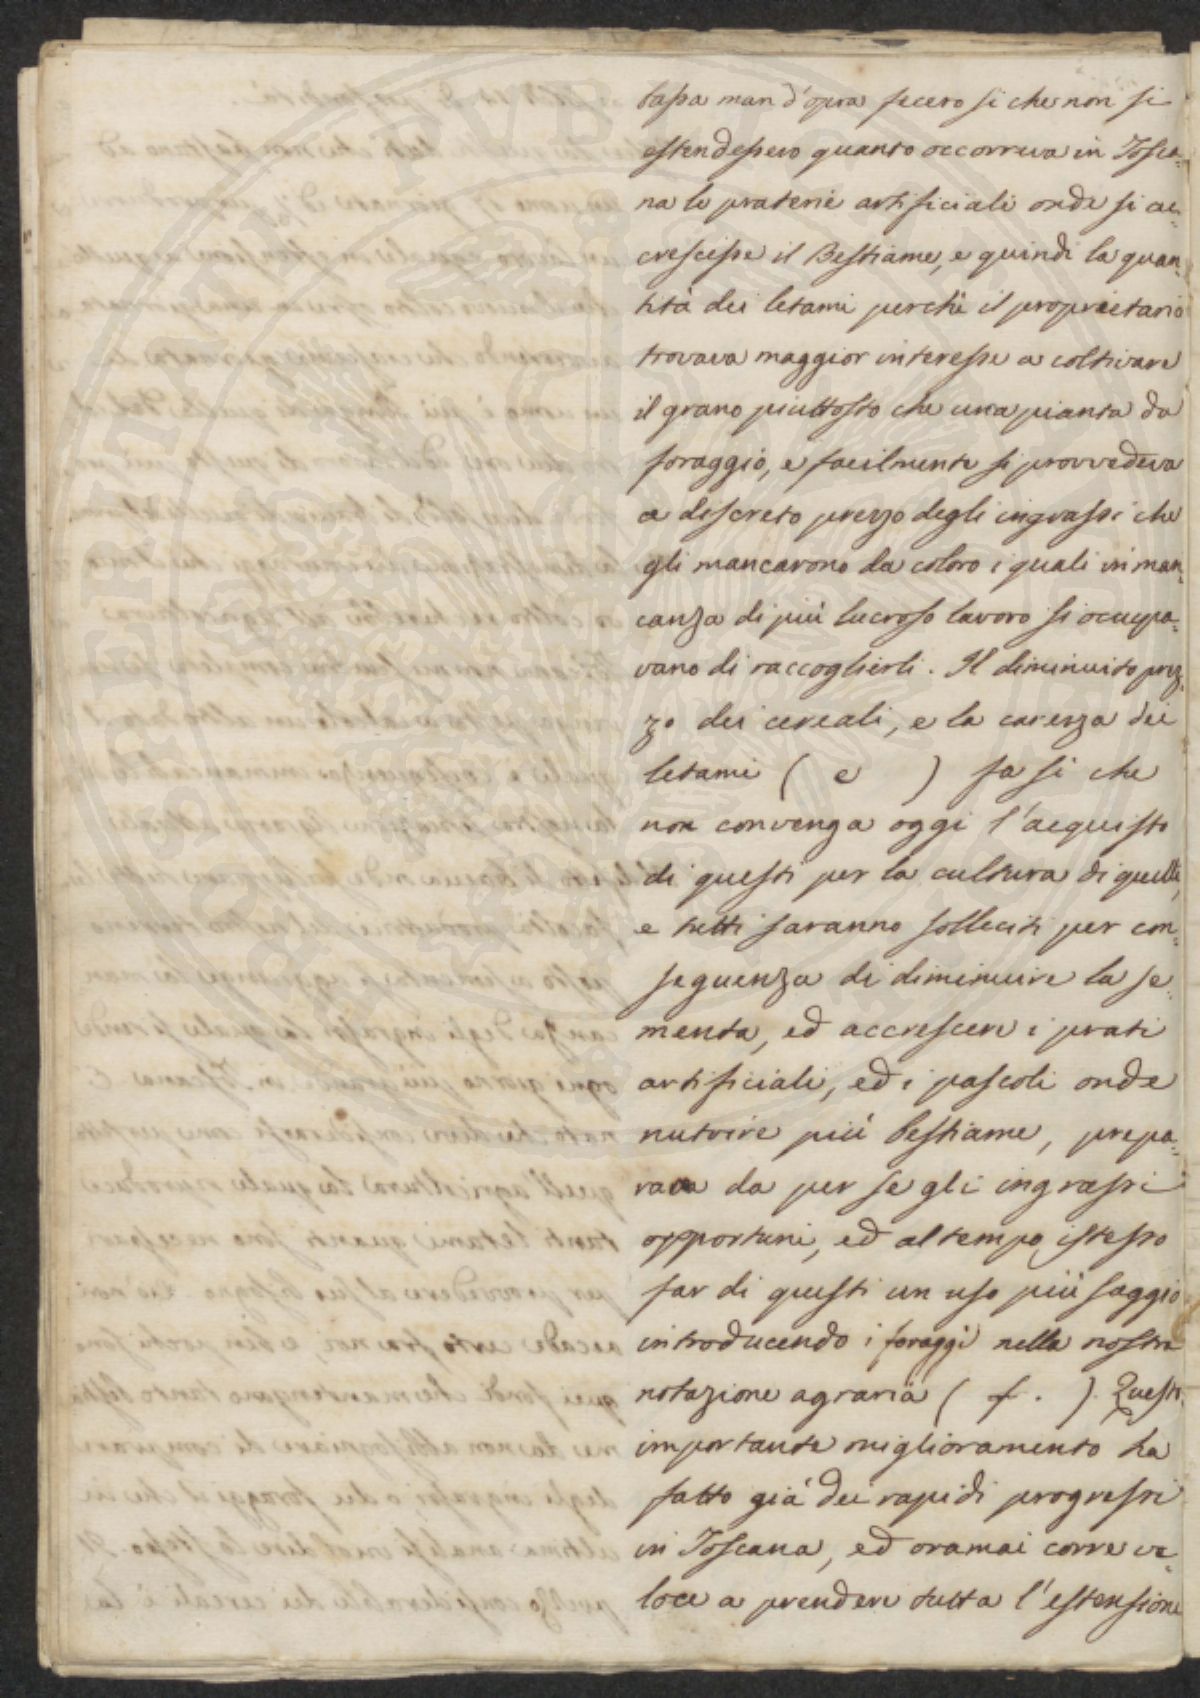 bassa man d'opra fecero si che non si
estendessero quanto occorreva in Tosca=
na le praterie artificiali onde si ac=
crescesse il Bestiame, e quindi la quan=
tità dei letami perchè il proprietario
trovava maggior interesse a coltivare
il grano piuttosto che una pianta da
foraggio, e facilmente si provvedeva
a discreto prezzo degli ingrassi che
gli mancavono da coloro i quali in man=
canza di più lucroso lavoro si occupa=
vano di raccoglierli. Il diminuito prez=
zo dei cereali, e la carezza dei
letami ( e ) fa si che
non convenga oggi l'acquisto
di questi per la cultura di quelli,
e tutti saranno solleciti per con=
seguenza di diminuire la se=
menta, ed accrescere i prati
artificiali, ed i pascoli onde
nutrire più bestiame, prepa=
da per se gli ingrassi
opportuni, ed al tempo istesso
far di questi un uso più saggio
introducendo i foraggi nella nostra
notazione agraria ( f. ). Questo
importante miglioramento ha
fatto già dei rapidi progressi
in Toscana, ed oramai corre ve=
loce a prendere tutta l'estensione